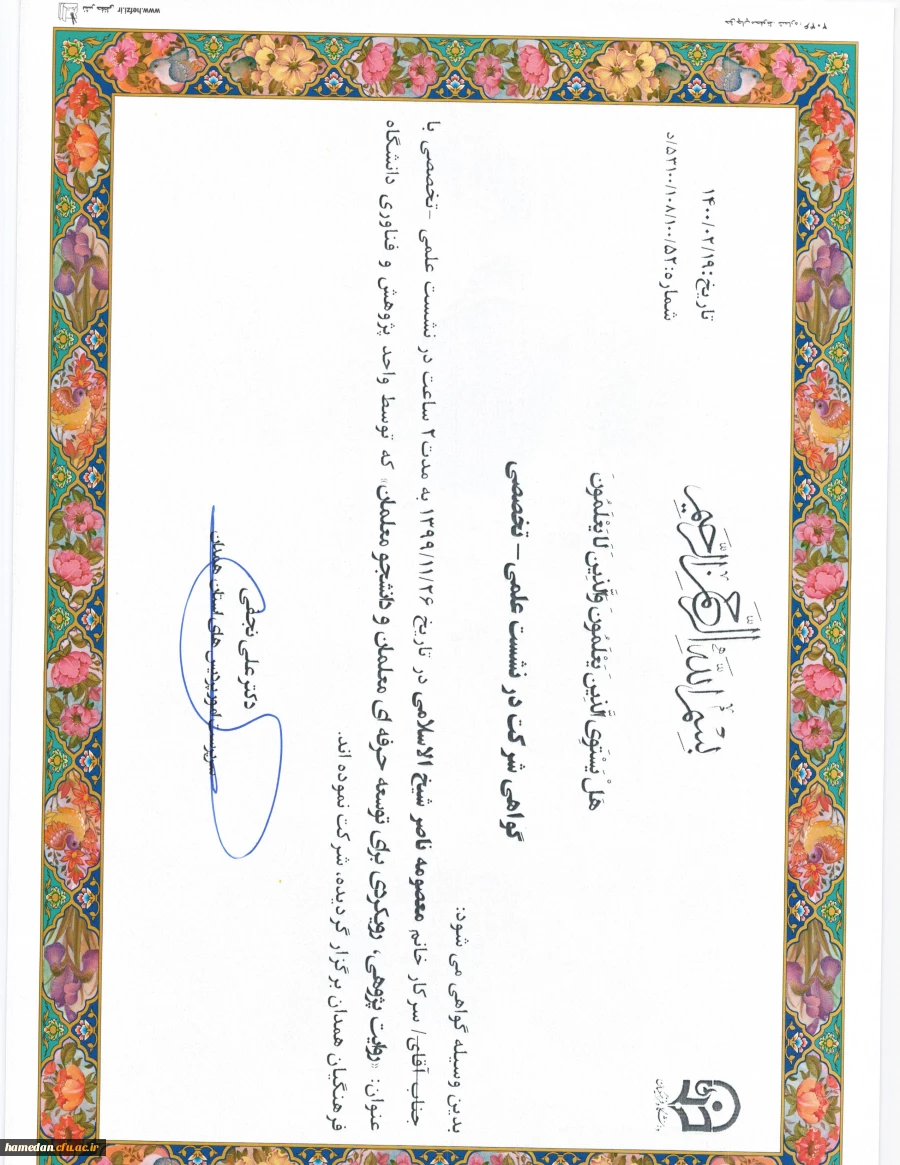 بسم الله الرحمن الرحیم
تاریخ: ۱۴۰۰/۰۲/۱۹
شماره: ۵۳۱۰۰/۱۰۸/۱۰۰/۵۲/د
هَلْ یَسْتَوِی الَّذِینَ یَعْلَمُونَ وَالَّذِینَ لَا یَعْلَمُونَ
گواهی شرکت در نشست علمی - تخصصی
بدین وسیله گواهی می شود:
جناب آقای/ سرکار خانم معصومه ناصر شیخ الاسلامی در تاریخ ۱۳۹۹/۱۱/۲۶ به مدت ۲ ساعت در نشست علمی -تخصصی با
عنوان: «روایت پژوهی، رویکردی برای توسعه حرفه ای معلمان و دانشجو معلمان» که توسط واحد پژوهش و فناوری دانشگاه
فرهنگیان همدان برگزار گردیده، شرکت نموده اند.
دکتر علی نجفی
سرپرست امور پردیس های استان همدان
www.hefzi.ir
hamedan.cfu.ac.ir